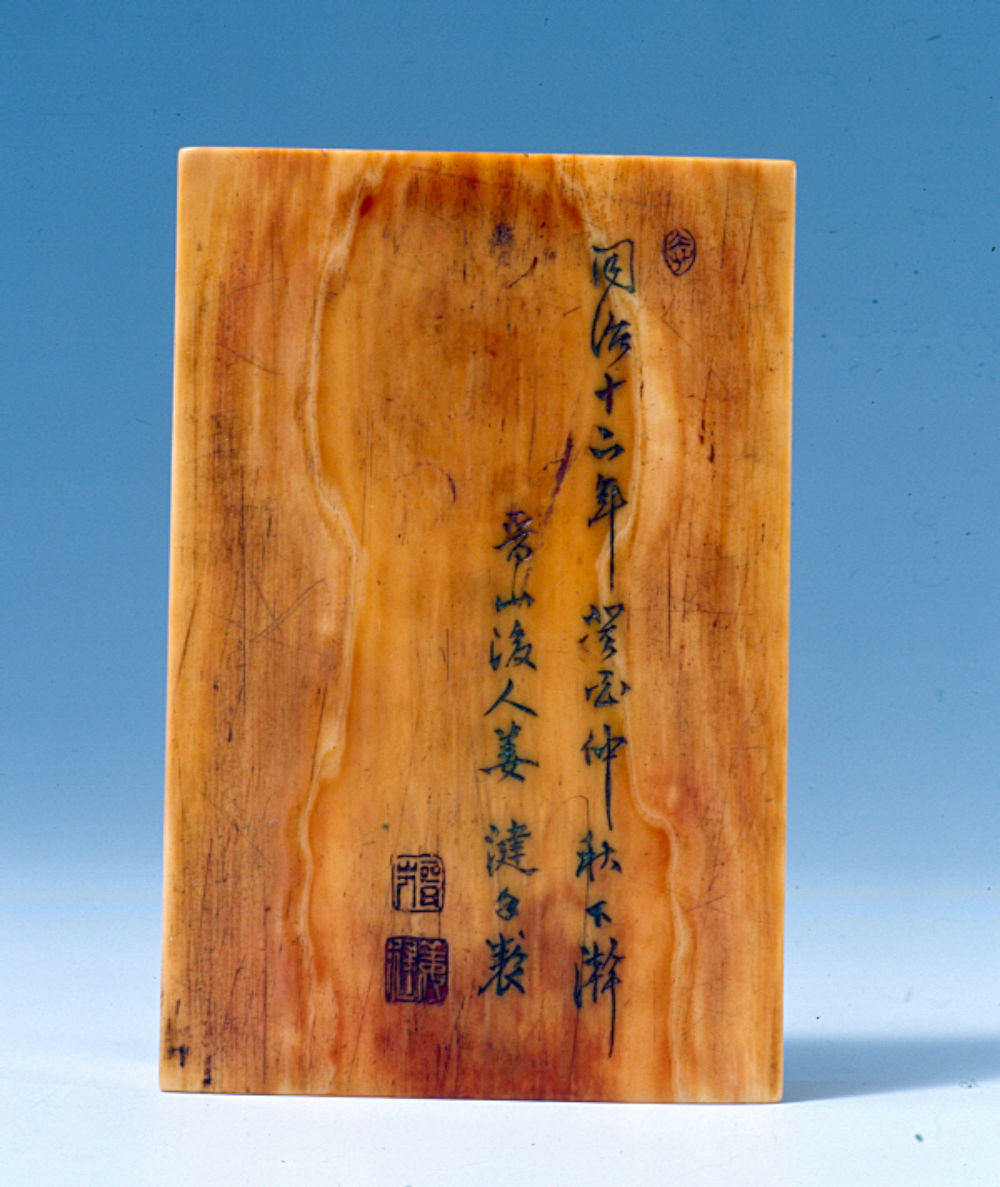 同治十二年癸酉仲秋下澣
晉山後人姜湕手製